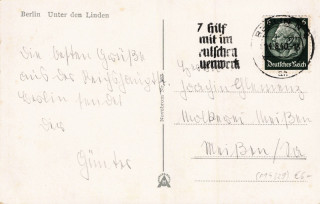 Berlin Unter den Linden
Die besten Grüße
aus der Reichshauptstadt
Berlin sendet
Günter
Hilf
mit im
Deutsches Reich
Herrn
Joachim Clemenz
Molkerei Meißen
Meißen/Sa